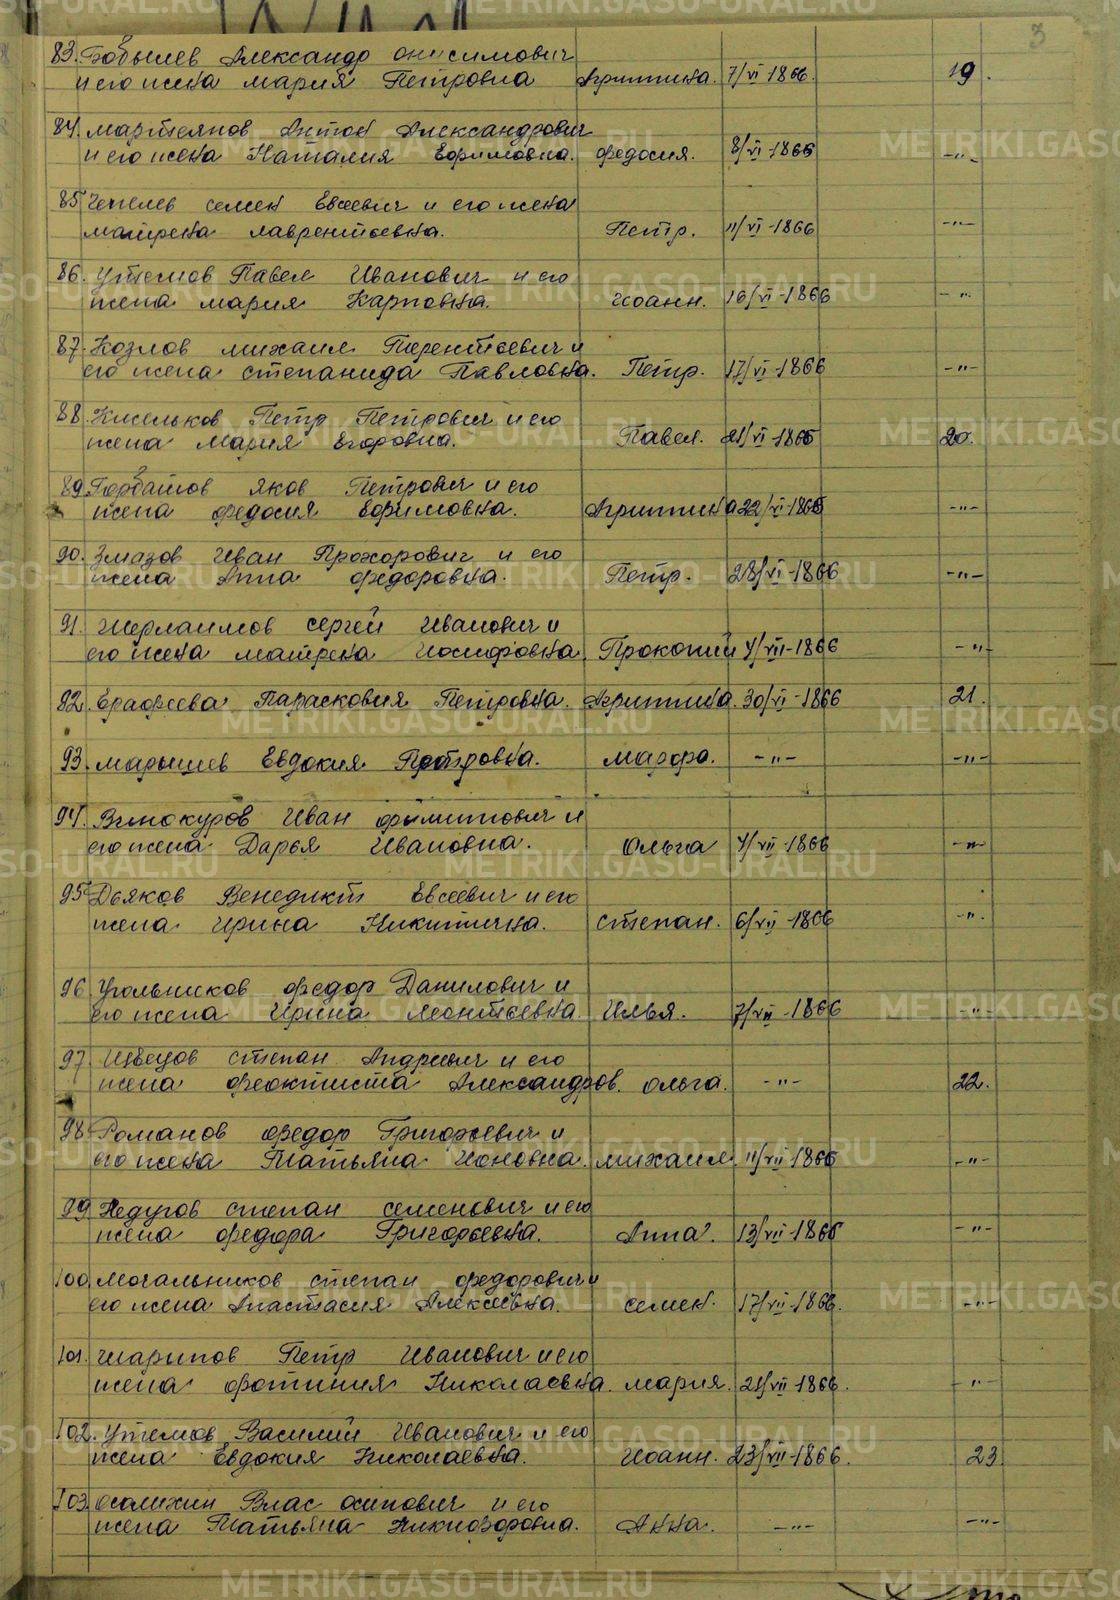 3
83. Бобылев Александр Онисимович
и его жена Мария Петровна Агриппина. 7/VI-1866. 19.
84. Мартьянов Антон Александрович
и его жена Наталия Ефимовна. Федосия. 8/VI-1866 -"-
85 Чепелев Семен Евсеевич и его жена
Матрена Лаврентьевна. Петр. 11/VI-1866 -"-
86. Утемов Павел Иванович и его
жена Мария Карповна. Иоанн. 16/VI-1866 -"-
87. Козлов Михаил Терентьевич и
его жена Степанида Павловна. Петр. 17/VI-1866 -"-
88. Кисельков Петр Петрович и его
жена Мария Егоровна. Павел. 21/VI-1866 20.
89. Горбатов Яков Петрович и его
жена Федосия Ефимовна. Агриппина 22/VI-1866 -"-
90. Змазов Иван Прохорович и его
жена Анна Федоровна. Петр. 28/VI-1866 -"-
91. Шерлаимов Сергей Иванович и
его жена Матрена Иосифовна Прокопий 4/VII-1866 -"-
92. Ерафеева Парасковия Петровна. Агриппина. 30/VI-1866 21.
93. Марышев Евдокия Петровна. Марфа. -"- -"-
94. Винокуров Иван Филиппович и
его жена Дарья Ивановна. Ольга 4/VII-1866 -"-
95. Дьяков Венедикт Евсеевич и его
жена Ирина Никитична. Степан. 6/VII-1866 -"-
96. Угольников Федор Данилович и
его жена Ирина Леонтьевна. Илья. 7/VII-1866 -"-
97. Швецов Степан Андреевич и его
жена Феоктиста Александров. Ольга. -"- 22.
98. Романов Федор Григорьевич и
его жена Татьяна Ионовна. Михаил 11/VII-1866 -"-
99. Недугов Степан Семенович и его
жена Федора Григорьевна. Анна. 13/VII-1866 -"-
100. Мочальников Степан Федорович и
его жена Анастасия Алексеевна. Семен. 17/VII-1866. -"-
101. Шарыпов Петр Иванович и его
жена Фотиния Николаевна. Мария. 21/VII-1866. -"-
102. Утемов Василий Иванович и его
жена Евдокия Николаевна. Иоанн. 23/VII-1866. 23
103. Осолихин Влас Осипович и его
жена Татьяна Никифоровна. Анна. -"- -"-
METRIKI.GASO-URAL.RU